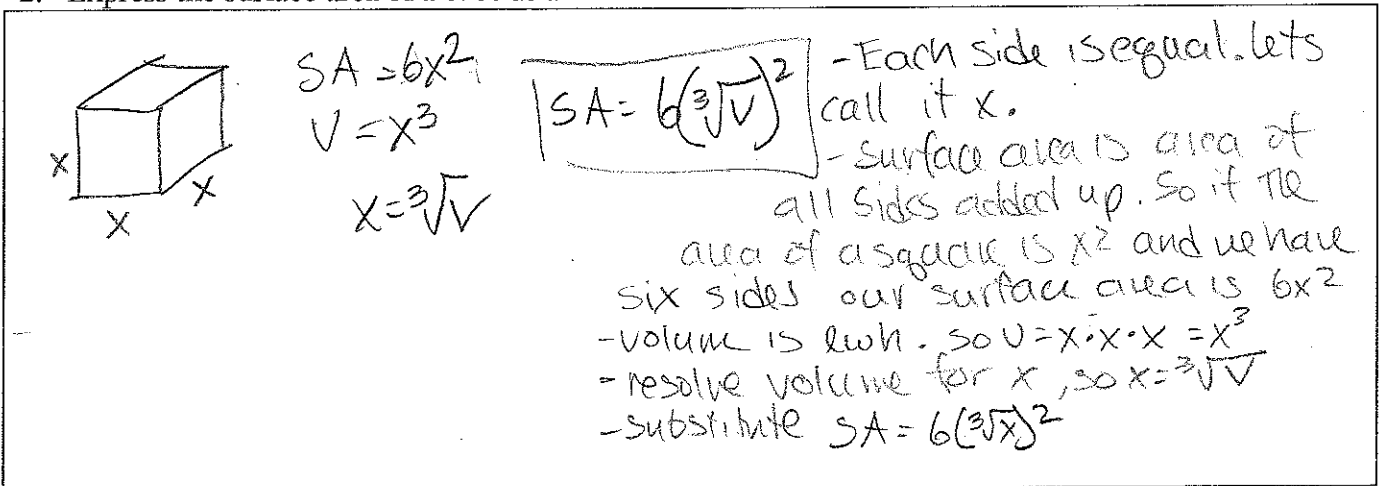 2. Express the surface area of a cube as a
SA = 6x²
V = x³
x = ³√V
x
x
x
SA = 6(³√V)²
- Each side is equal. lets
call it x.
- Surface area is area of
all sides added up. So if the
area of a square is x² and we have
six sides our surface area is 6x²
- volume is lwh. so V = x·x·x = x³
- resolve volume for x, so x = ³√V
- substitute SA = 6(³√x)²